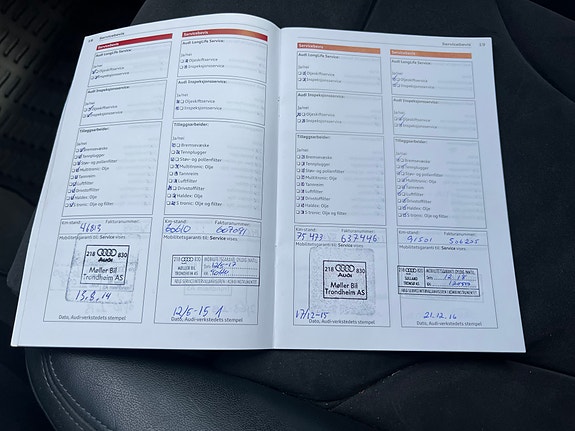 18
Servicebevis
Audi LongLife Service:
Ja/nei
Oljeskiftservice
Inspeksjonsservice
Audi Inspeksjonsservice:
Ja/nei
Oljeskiftservice
Inspeksjonsservice
Tilleggsarbeider:
Ja/nei
Bremsevæske
Tennplugger
Støv- og pollenfilter
Multitronic: Olje
Tannreim
Luftfilter
Drivstoffilter
Haldex: Olje
S tronic: Olje og oljefilter
Km-stand:
Fakturanummer:
46813
Mobilitetsgaranti til: Service vises
218 Audi 830
Møller Bil
Trondheim AS
15.8.14
Servicebevis
Audi LongLife Service:
Ja/nei
Oljeskiftservice
Inspeksjonsservice
Audi Inspeksjonsservice:
Ja/nei
Oljeskiftservice
Inspeksjonsservice
Tilleggsarbeider:
Ja/nei
Bremsevæske
Tennplugger
Støv- og pollenfilter
Multitronic: Olje
Tannreim
Luftfilter
Drivstoffilter
Haldex: Olje
S tronic: Olje og oljefilter
218 Audi 830
MØLLER BIL
TRONDHEIM AS
12/5-15
Dato, Audi-verkstedets stempel
Servicebevis
Audi LongLife Service:
Ja/nei
Oljeskiftservice
Inspeksjonsservice
Audi Inspeksjonsservice:
Ja/nei
Oljeskiftservice
Inspeksjonsservice
Tilleggsarbeider:
Ja/nei
Bremsevæske
Tennplugger
Støv- og pollenfilter
Multitronic: Olje
Tannreim
Luftfilter
Drivstoffilter
Haldex: Olje
S tronic: Olje og oljefilter
Km-stand:
Fakturanummer:
75 473
637446
Mobilitetsgaranti til: Service vises
218 Audi 830
Møller Bil
Trondheim AS
17/12-15
Dato, Audi-verkstedets stempel
Servicebevis
19
Ja/nei
Oljeskiftservice
Inspeksjonsservice
Ja/nei
Oljeskiftservice
Inspeksjonsservice
Tilleggsarbeider:
Ja/nei
Bremsevæske
Tennplugger
Støv- og pollenfilter
Multitronic: Olje
Tannreim
Luftfilter
Drivstoffilter
Haldex: Olje
S tronic: Olje og oljefilter
Km-stand:
Fakturanummer:
91501
506205
Mobilitetsgaranti til: Service vises
21.12.16
Dato, Audi-verkstedets stempel